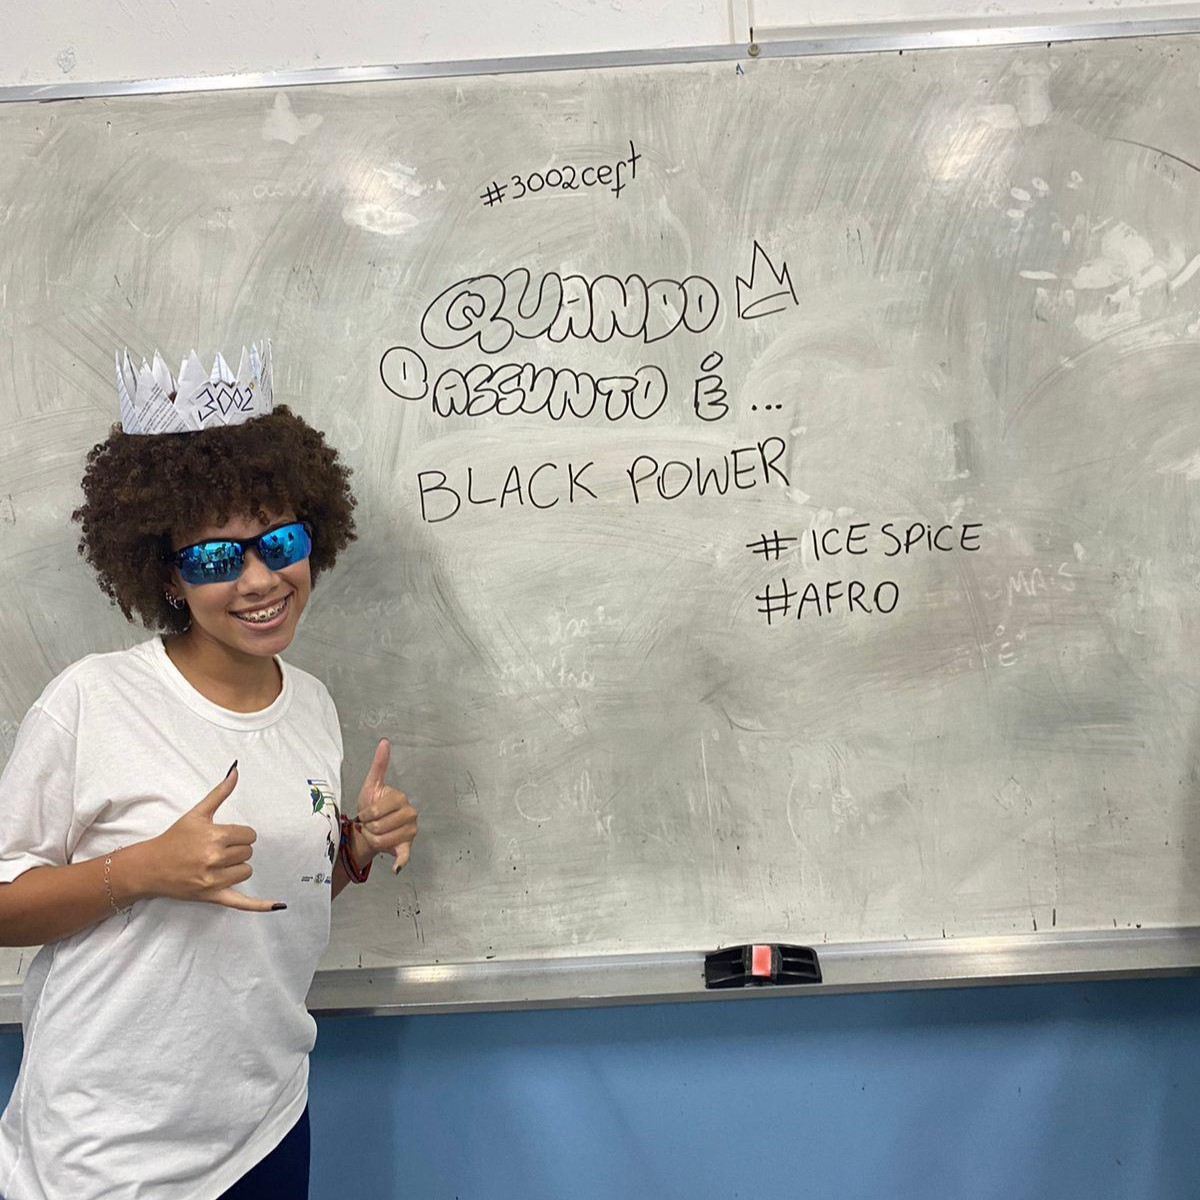 #3002ceft
QUANDO
O ASSUNTO É...
BLACK POWER
# ICE SPiCE
#AFRO
3002